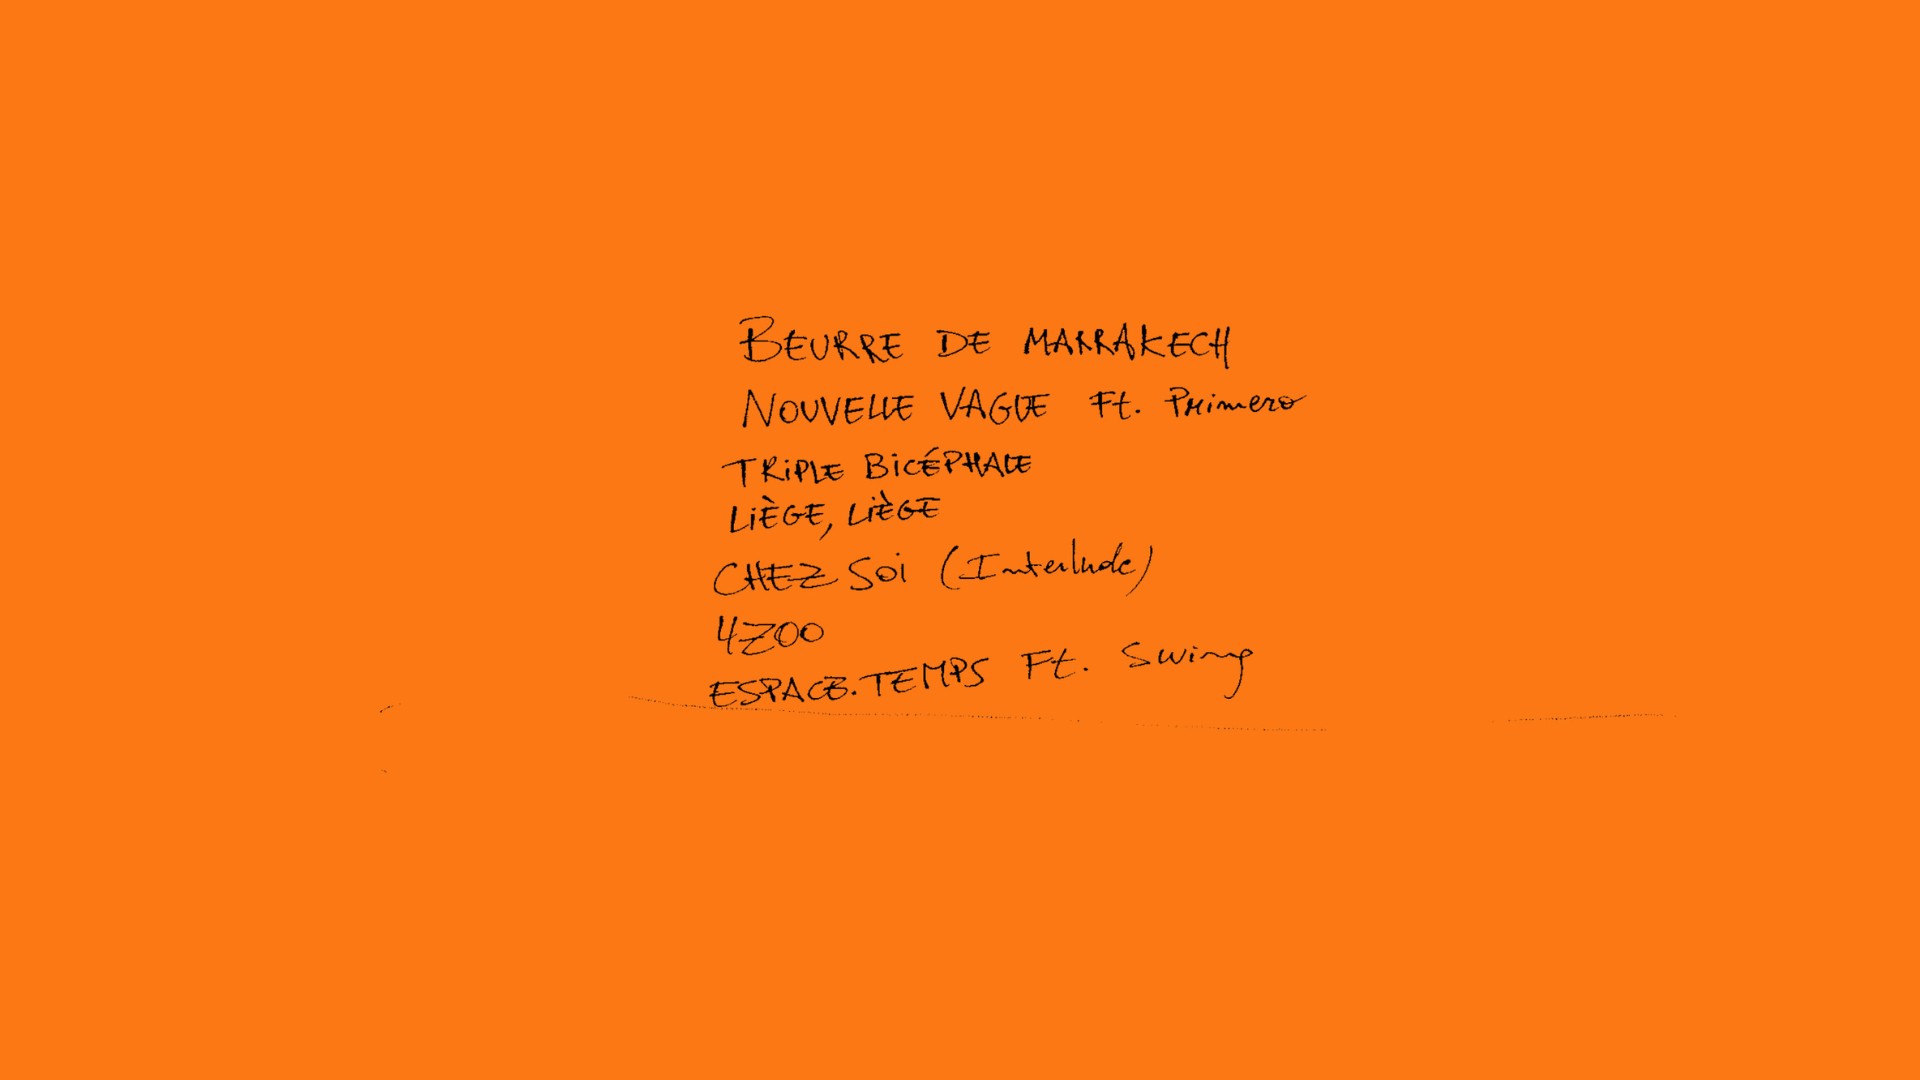 BEURRE DE MARRAKECH
NOUVELLE VAGUE Ft. Primero
TRiPLE BiCÉPHALE
LiÈGE, LiÈGE
CHEZ Soi (Interlude)
4Z00
ESPACE.TEMPS Ft. Swing